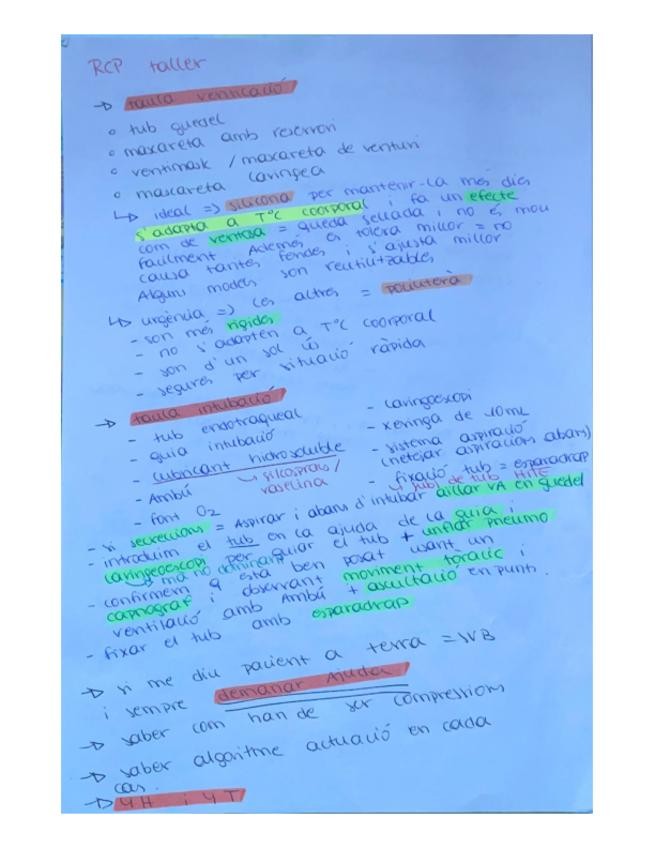 RCP taller
→ taula ventilació
o tub guedel
o maxareta amb reservori
o ventimask / maxareta de venturi
o mascareta laringea
↳ ideal => silicona per mantenir-la més dies
s'adapta a TºC coorporal i fa un efecte
com de ventosa = queda sellada i no es mou
facilment. Ademés es tolera millor = no
causa tantes fendes i s'ajusta millor
Alguns models son reutilitzables
↳ urgència => les altres = poliuterà
- son més rígides
- no s'adapten a TºC coorporal
- son d'un sol ús
- segures per situació ràpida
→ taula intubació
- tub endotraqueal
- guia intubació
- lubricant hidrosoluble
→ silcospray / vaselina
- Ambú
- font O2
- laringoescopi
- xeringa de 10mL
- sistema aspiració
(netejar aspiracions abans)
- fixació tub = esparadrap
- si secrecions = Aspirar i abans d'intubar aïllar VA en guedel
- introduim el tub en la ajuda de la guia i
laringoescopi per guiar el tub + unflar pneumo
→ ma no dominant
- confirmem q està ben posat usant un
capnograf i observant moviment toràcic i
ventilació amb Ambú + auscultació en 5 punts.
- fixar el tub amb esparadrap
→ si me diu pacient a terra = SVB
i sempre demanar Ajuda
→ saber com han de ser compressions
→ saber algoritme actuació en cada
cas.
→ 4H i 4T